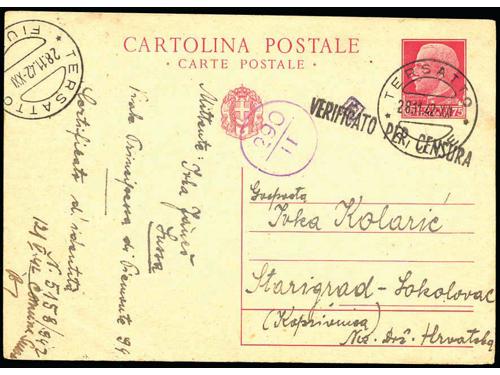 CARTOLINA POSTALE
CARTE POSTALE
TERSATTO
28.11.42-XXI
FIU
TERSATTO
28.11.42-XXI
VERIFICATO PER CENSURA
11
Mittente: Ivka
Viale Principessa di Piemonte 94
Certificato d'identità
N. 5158/942
Ivka Kolarić
Starigrad-Sokolovac
(Koprivnica)
Nez. Drž. Hrvatska